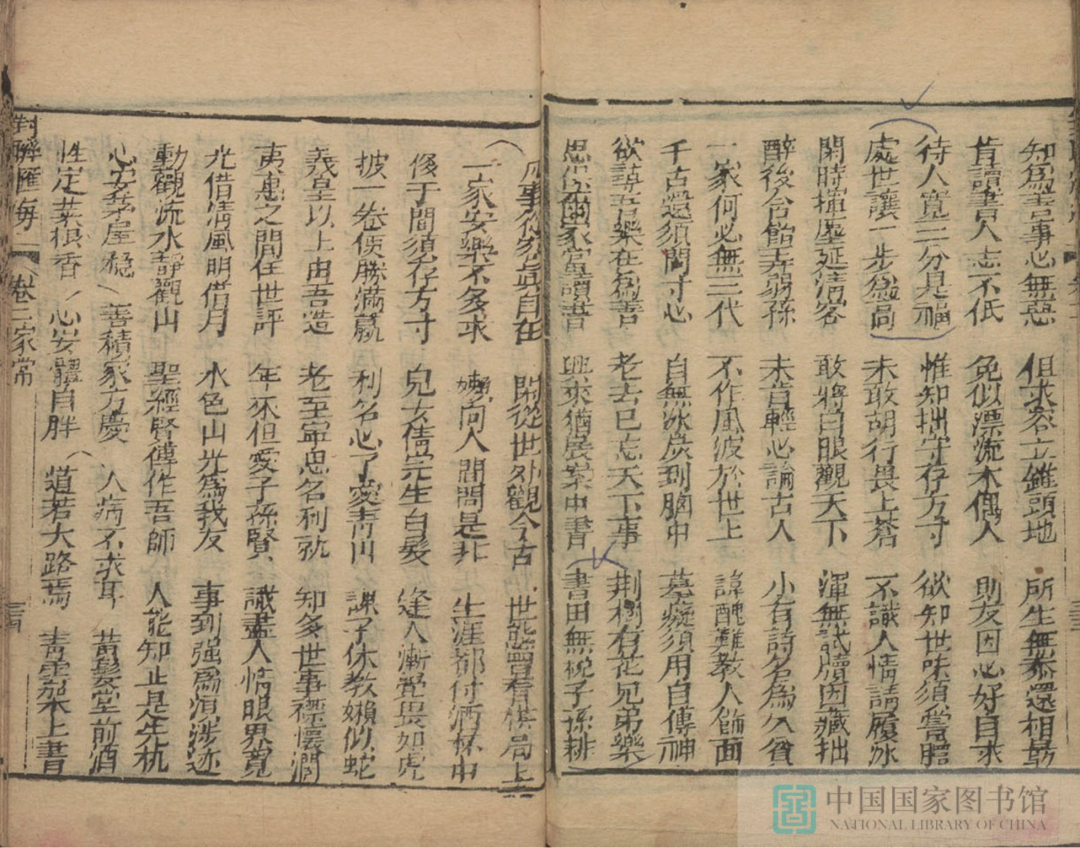 知爲善事心無惡 但求容立錐頭地 所生無忝還相勗
肯讀書人志不低 免似漂流木偶人 則友因心好自求
待人寬三分是福 惟知拙守存方寸 欲知世味須嘗膽
處世讓一步爲高 未敢胡行畏上蒼 不識人情請履冰
閑時掃塵延清客 敢將白眼觀天下 渾無牘因藏拙
醉後含飴弄弱孫 未肯輕心論古人 小有詩名爲久貧
一家何必無三代 不作風波於世上 諱醜難教人飾面
千古還須問寸心 自無冰炭到胸中 摹癡須用自傳神
欲尋吾樂在爲善 老去已忘天下事 荊樹有花兄弟樂
思保國家當讀書 興來猶展案中書 書田無稅子孫耕
凡事從容皆自在 閑從世外觀今古 世態嘗看棋局上
一家安樂不多求 嬾向人間問是非 生涯都付酒杯中
後于間須存方寸 兒女債完生白髮 逢人漸覺畏如虎
披一卷便勝滿籯 利名心了愛青山 課子休教嬾似蛇
義皇以上由吾造 老至寧忘名利就 知多世事襟懷濶
夷惠之間任世評 年來但愛子孫賢 識盡人情眼界寬
光借清風明借月 水色山光爲我友 事到强爲須涉迹
動觀流水靜觀山 聖經賢傳作吾師 人能知止是年杭
心安茅屋穩 善積家方慶 人病不求耳 黃髮堂前酒
性定菜根香 心安體自胖 道若大路焉 青雲架上書
對聯匯海 卷三家常 三四
中国国家图书馆
NATIONAL LIBRARY OF CHINA